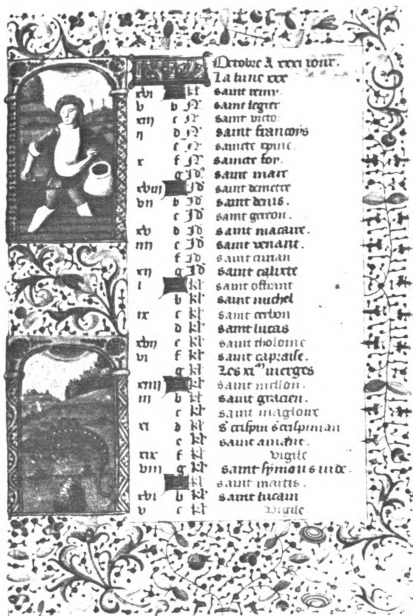 Octobre A xxxi iour.
La lune xxx
xvi kl saint remy.
v b N saint legier
xiii c N saint victo
ii d N saint francoys
e N saincte
x f N saincte foy.
g Id saint marc
xviii Id saint demetre
vii b Id saint denis.
c Id saint gereon.
xv d Id saint macaire.
iiii e Id saint venant.
f Id saint
xii g Id saint calixte
i kl saint
b kl saint michel
ix c kl saint cerbon
d kl saint lucas
xvii e kl saint tholome
vi f kl saint capraise.
g kl Les xi.m vierges
xiiii kl saint mellon.
iii b kl saint gracien.
c kl saint magloire
xi d kl s crespin s crespinian
e kl saint amant.
xix f kl vigile
viii g kl saint symon s iude.
kl saint
xvi b kl saint lucain
v c kl vigile.